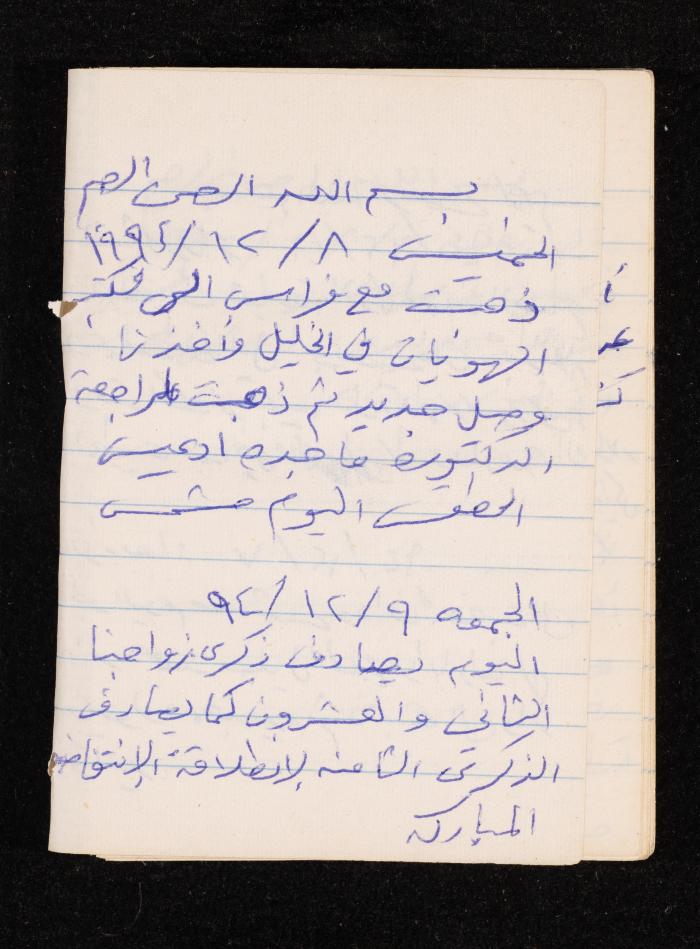 بسم الله الرحمن الرحيم
الخميس ٨/١٢/١٩٩٤
ذهبت مع فراس الى مكتب
الهويات في الخليل وأخذنا
وصل جديد ثم ذهبت لمراجعة
الدكتورة ماجده ادعيس
الطقس اليوم مشمس
الجمعه ٩/١٢/٩٤
اليوم يصادف ذكرى زواجنا
الثاني والعشرون كما يصادف
الذكرى الثامنه لإنطلاقة الإنتفاضه
المباركه